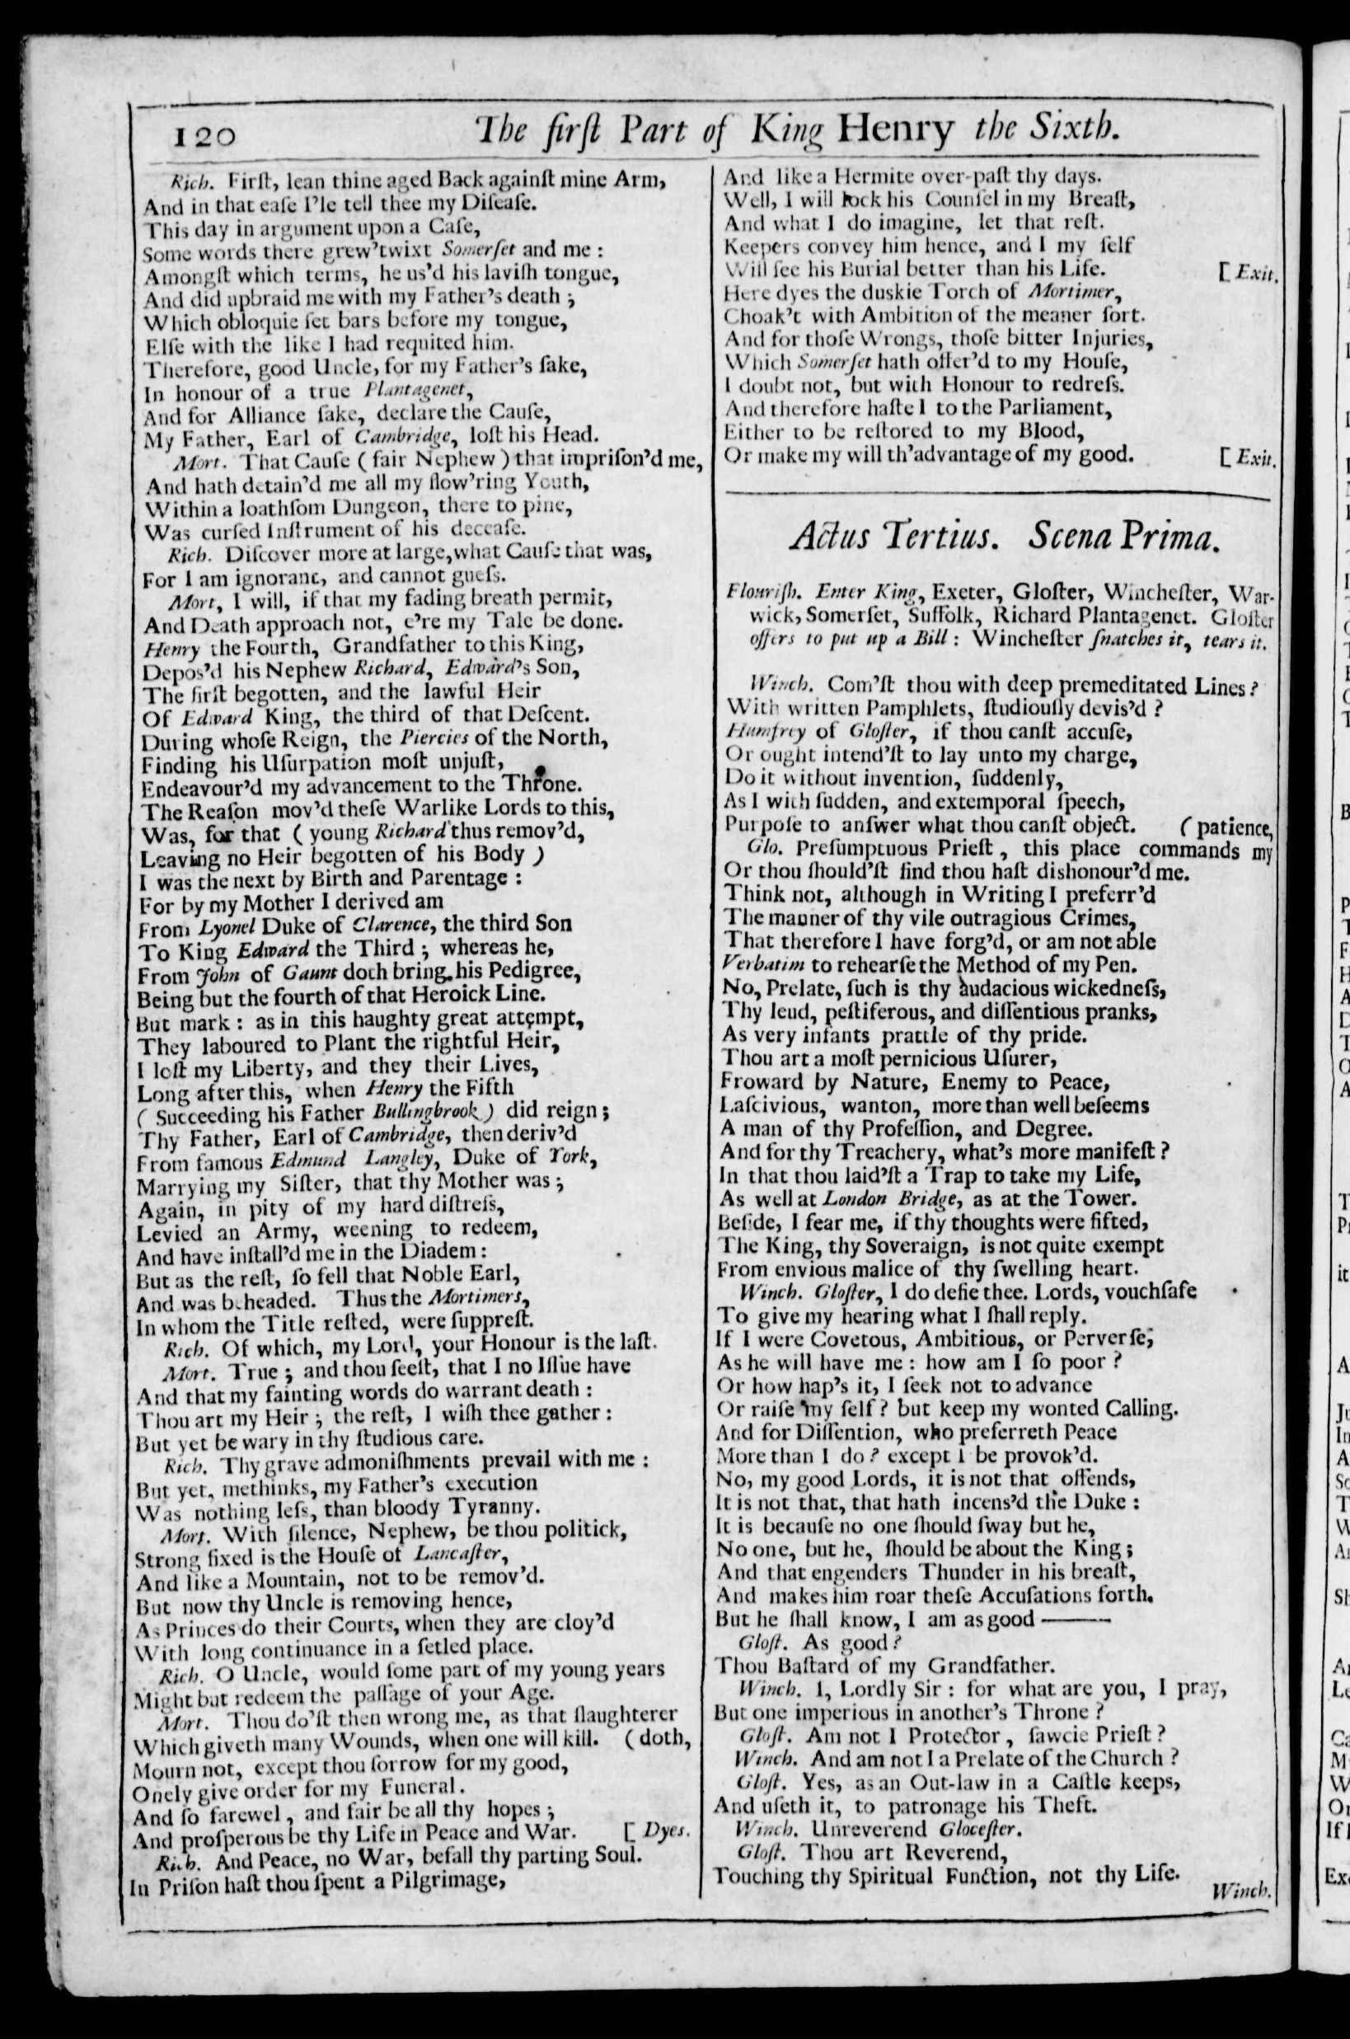 120
The firſt Part of King Henry the Sixth.
Rich. Firſt, lean thine aged Back againſt mine Arm,
And in that eaſe I'le tell thee my Diſeaſe.
This day in argument upon a Caſe,
Some words there grew 'twixt Somerſet and me :
Amongſt which terms, he us'd his laviſh tongue,
And did upbraid me with my Father's death ;
Which obloquie ſet bars before my tongue,
Elſe with the like I had requited him.
Therefore, good Uncle, for my Father's ſake,
In honour of a true Plantagenet,
And for Alliance ſake, declare the Cauſe,
My Father, Earl of Cambridge, loſt his Head.
Mort. That Cauſe ( fair Nephew ) that impriſon'd me,
And hath detain'd me all my flow'ring Youth,
Within a loathſom Dungeon, there to pine,
Was curſed Inſtrument of his deceaſe.
Rich. Diſcover more at large, what Cauſe that was,
For I am ignorant, and cannot gueſs.
Mort, I will, if that my fading breath permit,
And Death approach not, e're my Tale be done.
Henry the Fourth, Grandfather to this King,
Depos'd his Nephew Richard, Edward's Son,
The firſt begotten, and the lawful Heir
Of Edward King, the third of that Deſcent.
During whoſe Reign, the Piercies of the North,
Finding his Uſurpation moſt unjuſt,
Endeavour'd my advancement to the Throne.
The Reaſon mov'd theſe Warlike Lords to this,
Was, for that ( young Richard thus remov'd,
Leaving no Heir begotten of his Body )
I was the next by Birth and Parentage :
For by my Mother I derived am
From Lyonel Duke of Clarence, the third Son
To King Edward the Third ; whereas he,
From John of Gaunt doth bring his Pedigree,
Being but the fourth of that Heroick Line.
But mark : as in this haughty great attempt,
They laboured to Plant the rightful Heir,
I loſt my Liberty, and they their Lives,
Long after this, when Henry the Fifth
( Succeeding his Father Bullingbrook ) did reign ;
Thy Father, Earl of Cambridge, then deriv'd
From famous Edmund Langley, Duke of York,
Marrying my Siſter, that thy Mother was ;
Again, in pity of my hard diſtreſs,
Levied an Army, weening to redeem,
And have inſtall'd me in the Diadem :
But as the reſt, ſo fell that Noble Earl,
And was beheaded. Thus the Mortimers,
In whom the Title reſted, were ſuppreſt.
Rich. Of which, my Lord, your Honour is the laſt.
Mort. True ; and thou ſeeſt, that I no Iſſue have
And that my fainting words do warrant death :
Thou art my Heir ; the reſt, I wiſh thee gather :
But yet be wary in thy ſtudious care.
Rich. Thy grave admoniſhments prevail with me :
But yet, methinks, my Father's execution
Was nothing leſs, than bloody Tyranny.
Mort. With ſilence, Nephew, be thou politick,
Strong fixed is the Houſe of Lancaſter,
And like a Mountain, not to be remov'd.
But now thy Uncle is removing hence,
As Princes do their Courts, when they are cloy'd
With long continuance in a ſetled place.
Rich. O Uncle, would ſome part of my young years
Might but redeem the paſſage of your Age.
Mort. Thou do'ſt then wrong me, as that ſlaughterer
Which giveth many Wounds, when one will kill. ( doth,
Mourn not, except thou ſorrow for my good,
Onely give order for my Funeral.
And ſo farewel, and fair be all thy hopes ;
And proſperous be thy Life in Peace and War. [ Dyes.
Rich. And Peace, no War, befall thy parting Soul.
In Priſon haſt thou ſpent a Pilgrimage,
And like a Hermite over-paſt thy days.
Well, I will lock his Counſel in my Breaſt,
And what I do imagine, let that reſt.
Keepers convey him hence, and I my ſelf
Will ſee his Burial better than his Life. [ Exit.
Here dyes the duskie Torch of Mortimer,
Choak't with Ambition of the meaner ſort.
And for thoſe Wrongs, thoſe bitter Injuries,
Which Somerſet hath offer'd to my Houſe,
I doubt not, but with Honour to redreſs.
And therefore haſte I to the Parliament,
Either to be reſtored to my Blood,
Or make my will th'advantage of my good. [ Exit.
Actus Tertius. Scena Prima.
Flouriſh. Enter King, Exeter, Gloſter, Wincheſter, War-
wick, Somerſet, Suffolk, Richard Plantagenet. Gloſter
offers to put up a Bill : Wincheſter ſnatches it, tears it.
Winch. Com'ſt thou with deep premeditated Lines ?
With written Pamphlets, ſtudiouſly devis'd ?
Humfrey of Gloſter, if thou canſt accuſe,
Or ought intend'ſt to lay unto my charge,
Do it without invention, ſuddenly,
As I with ſudden, and extemporal ſpeech,
Purpoſe to anſwer what thou canſt object. ( patience,
Glo. Preſumptuous Prieſt, this place commands my
Or thou ſhould'ſt find thou haſt dishonour'd me.
Think not, although in Writing I preferr'd
The manner of thy vile outragious Crimes,
That therefore I have forg'd, or am not able
Verbatim to rehearſe the Method of my Pen.
No, Prelate, ſuch is thy audacious wickedneſs,
Thy leud, peſtiferous, and diſſentious pranks,
As very infants prattle of thy pride.
Thou art a moſt pernicious Uſurer,
Froward by Nature, Enemy to Peace,
Laſcivious, wanton, more than well beſeems
A man of thy Profeſſion, and Degree.
And for thy Treachery, what's more manifeſt ?
In that thou laid'ſt a Trap to take my Life,
As well at London Bridge, as at the Tower.
Beſide, I fear me, if thy thoughts were ſifted,
The King, thy Soveraign, is not quite exempt
From envious malice of thy ſwelling heart.
Winch. Gloſter, I do defie thee. Lords, vouchſafe
To give my hearing what I ſhall reply.
If I were Covetous, Ambitious, or Perverſe,
As he will have me : how am I ſo poor ?
Or how hap's it, I ſeek not to advance
Or raiſe my ſelf ? but keep my wonted Calling.
And for Diſſention, who preferreth Peace
More than I do ? except I be provok'd.
No, my good Lords, it is not that offends,
It is not that, that hath incens'd the Duke :
It is becauſe no one ſhould ſway but he,
No one, but he, ſhould be about the King ;
And that engenders Thunder in his breaſt,
And makes him roar theſe Accuſations forth.
But he ſhall know, I am as good ———
Gloſt. As good ?
Thou Baſtard of my Grandfather.
Winch. I, Lordly Sir : for what are you, I pray,
But one imperious in another's Throne ?
Gloſt. Am not I Protector, ſawcie Prieſt ?
Winch. And am not I a Prelate of the Church ?
Gloſt. Yes, as an Out-law in a Caſtle keeps,
And uſeth it, to patronage his Theft.
Winch. Unreverend Gloceſter.
Gloſt. Thou art Reverend,
Touching thy Spiritual Function, not thy Life.
Winch.